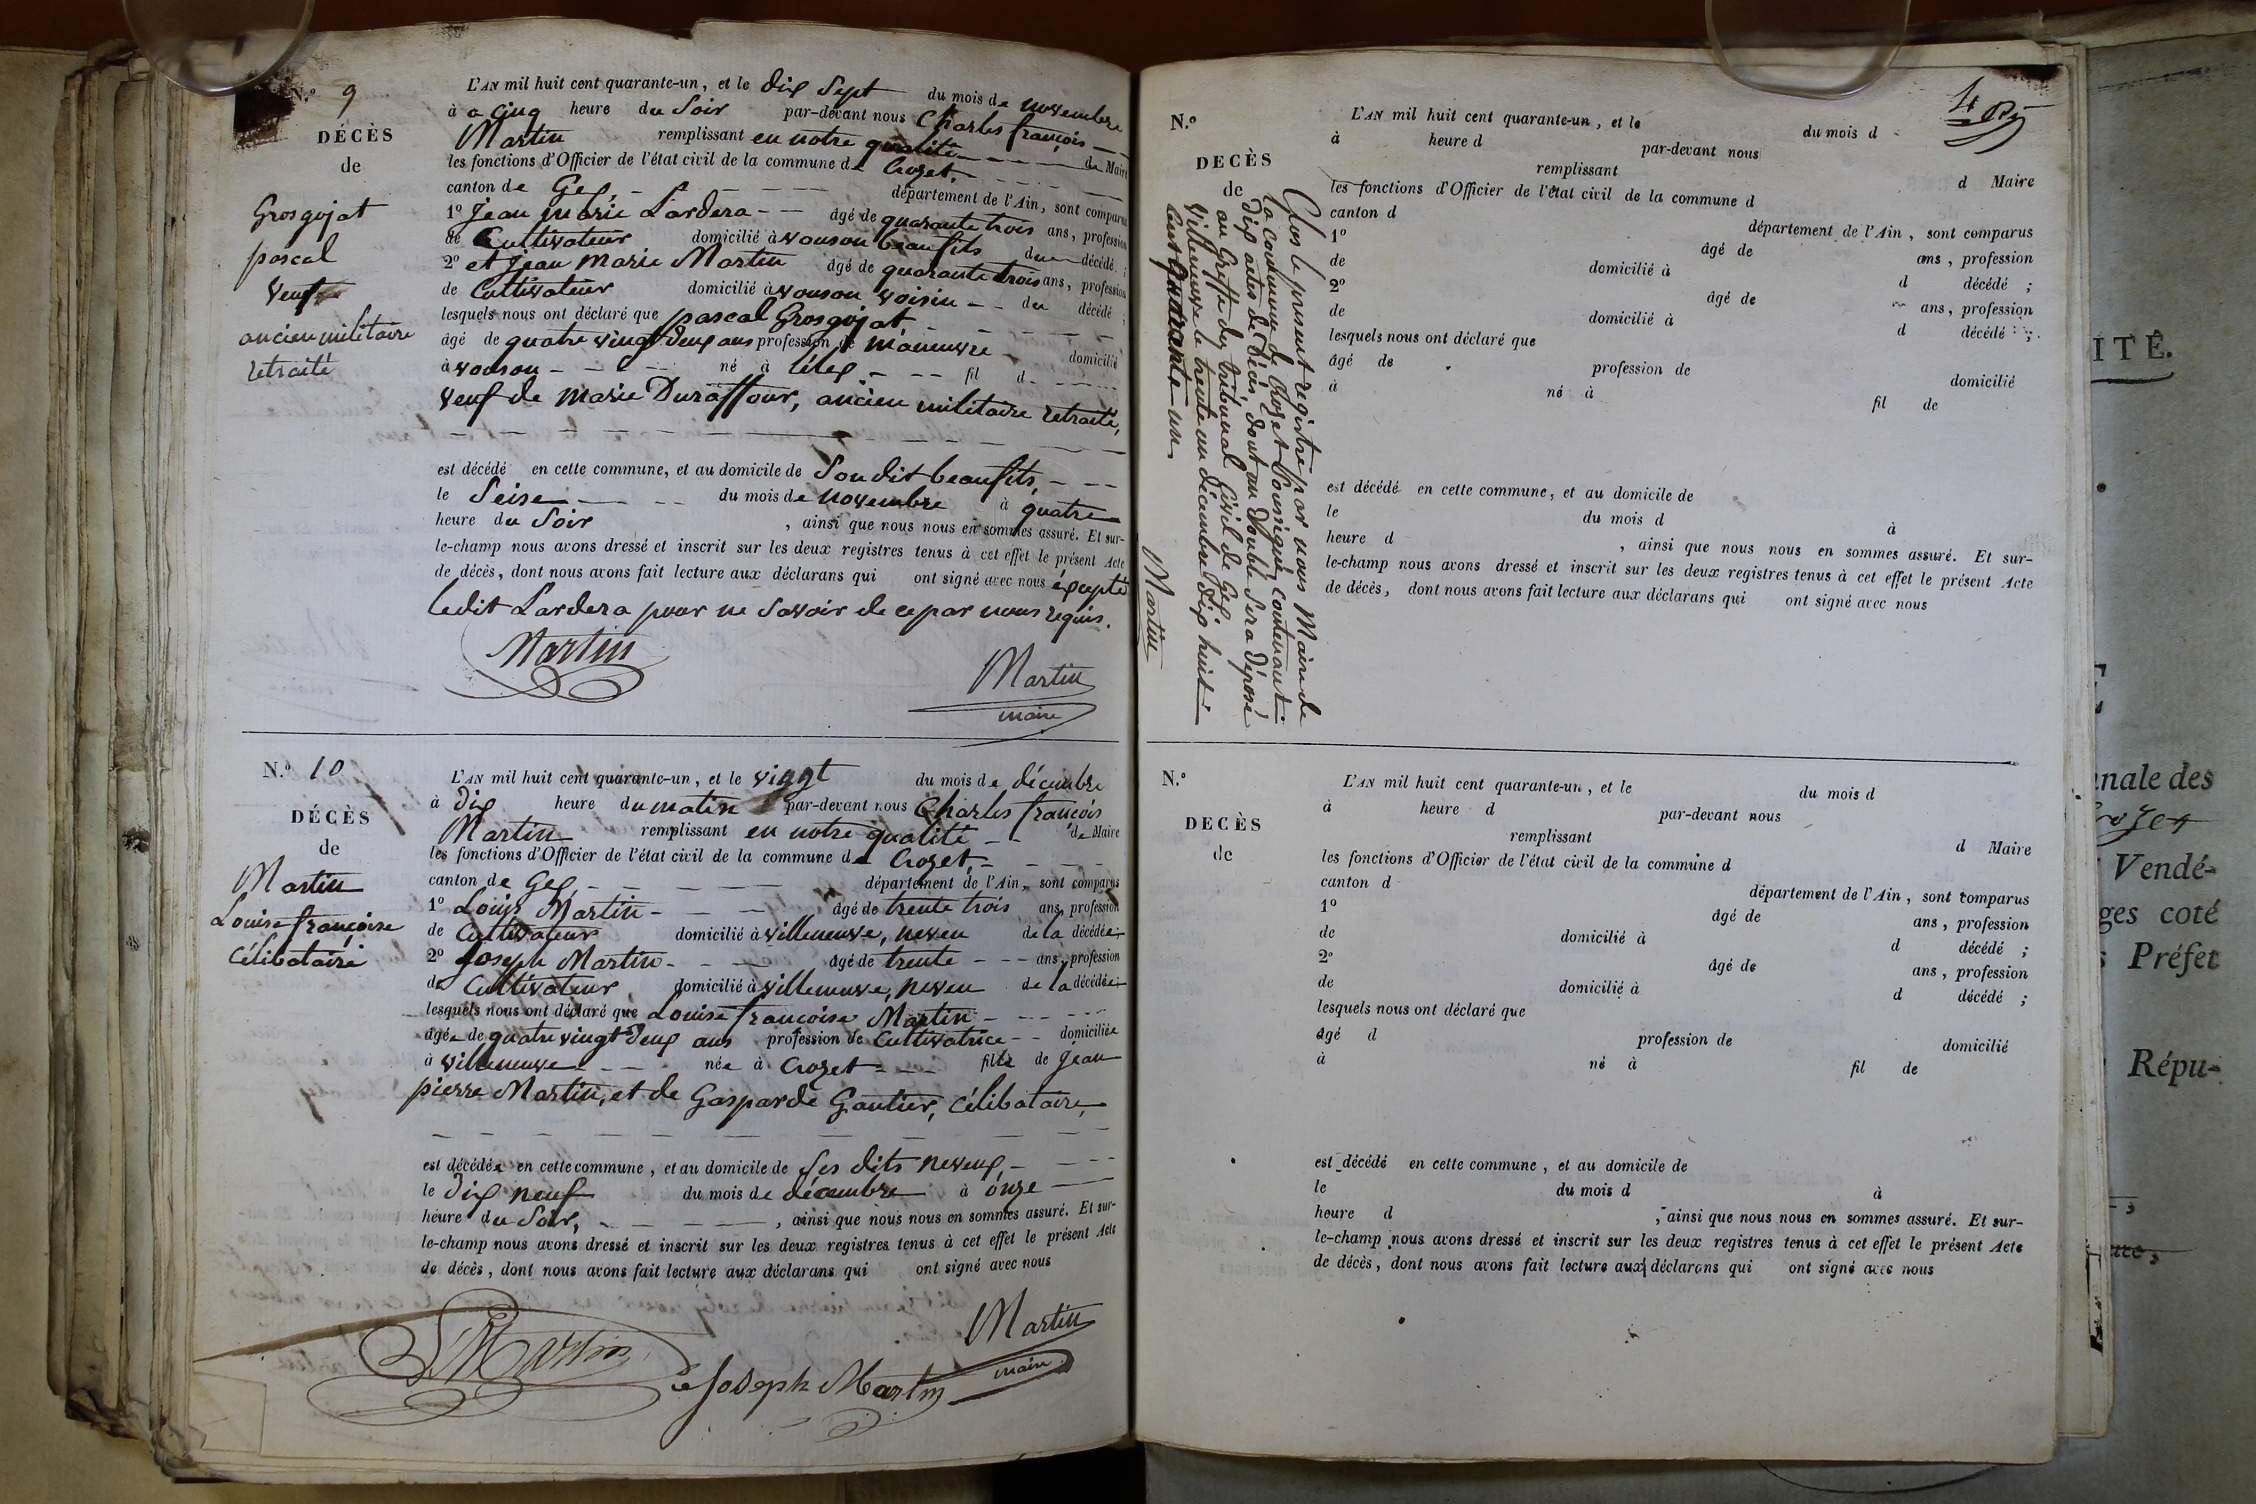 N.º 9
DÉCÈS
de
Grosgojat
pascal
Veuf
ancien militaire
retraité
L'AN mil huit cent quarante-un, et le dix Sept du mois de novembre
à a cinq heure du Soir par-devant nous Charles françois
Martin remplissant en notre qualité de Maire
les fonctions d'Officier de l'état civil de la commune de Crozet,
canton de Gex département de l'Ain, sont comparus
1º Jean marie Lardera âgé de quarante trois ans, profession
de Cultivateur domicilié à vouson beaufils du décédé;
2º et Jean Marie Martin âgé de quarante trois ans, profession
de Cultivateur domicilié à vouson voisin du décédé;
lesquels nous ont déclaré que pascal Grosgojat
âgé de quatre vingt deux ans profession de maneuvre domicilié
à vouson né à lélex fil d
Veuf de Marie Duraffour, ancien militaire retraité,
est décédé en cette commune, et au domicile de Son dit beaufils,
le Seise du mois de novembre à quatre
heure du Soir, ainsi que nous nous en sommes assuré. Et sur-
le-champ nous avons dressé et inscrit sur les deux registres tenus à cet effet le présent Acte
de décès, dont nous avons fait lecture aux déclarans qui ont signé avec nous éxcepté
ledit Lardera pour ne Savoir de ce par nous requis.
Martin
Martin
maire
N.º 10
DÉCÈS
de
Martin
Louise françoise
Célibataire
L'AN mil huit cent quarante-un, et le vingt du mois de décembre
à dix heure du matin par-devant nous Charles françois
Martin remplissant en notre qualité de Maire
les fonctions d'Officier de l'état civil de la commune de Crozet,
canton de Gex, département de l'Ain, sont comparus
1º Louis Martin âgé de trente trois ans, profession
de Cultivateur domicilié à villeneuve, neveu de la décédée;
2º Joseph Martin âgé de trente ans, profession
de Cultivateur domicilié à villeneuve, neveu de la décédée;
lesquels nous ont déclaré que Louise francoise Martin
âgée de quatre vingt deux ans profession de Cultivatrice domiciliée
à villeneuve née à Crozet fille de Jean
pierre Martin, et de Gasparde Gautier, Célibataire,
est décédée en cette commune, et au domicile de Ses dits neveux,
le dix neuf du mois de décembre à onze
heure du Soir, ainsi que nous nous en sommes assuré. Et sur-
le-champ nous avons dressé et inscrit sur les deux registres tenus à cet effet le présent Acte
de décès, dont nous avons fait lecture aux déclarans qui ont signé avec nous
L Martin
Joseph Martin
Martin
maire
N.º
DECÈS
de
Clos le présent registre par nous Maire de
la commune de Crozet Soussigné, contenant
dix actes de décès, dont un double Sera déposé
au Greffe du tribunal Civil de Gex
villeneuve le trente un décembre dix huit
Cent Quarante-un
Martin
L'AN mil huit cent quarante-un, et le du mois d
à heure d par-devant nous
remplissant d Maire
les fonctions d'Officier de l'état civil de la commune d
canton d département de l'Ain, sont comparus
1º âgé de ans, profession
de domicilié à d décédé;
2º âgé de ans, profession
de domicilié à d décédé;
lesquels nous ont déclaré que
âgé de profession de domicilié
à né à fil de
est décédé en cette commune, et au domicile de
le du mois d à
heure d, ainsi que nous nous en sommes assuré. Et sur-
le-champ nous avons dressé et inscrit sur les deux registres tenus à cet effet le présent Acte
de décès, dont nous avons fait lecture aux déclarans qui ont signé avec nous
N.º
DECÈS
de
L'AN mil huit cent quarante-un, et le du mois d
à heure d par-devant nous
remplissant d Maire
les fonctions d'Officier de l'état civil de la commune d
canton d département de l'Ain, sont comparus
1º âgé de ans, profession
de domicilié à d décédé;
2º âgé de ans, profession
de domicilié à d décédé;
lesquels nous ont déclaré que
âgé d profession de domicilié
à né à fil de
est décédé en cette commune, et au domicile de
le du mois d à
heure d, ainsi que nous nous en sommes assuré. Et sur-
le-champ nous avons dressé et inscrit sur les deux registres tenus à cet effet le présent Acte
de décès, dont nous avons fait lecture aux déclarans qui ont signé avec nous
ITÉ.
nale des
Vendé-
ges coté
Préfet
Répu-